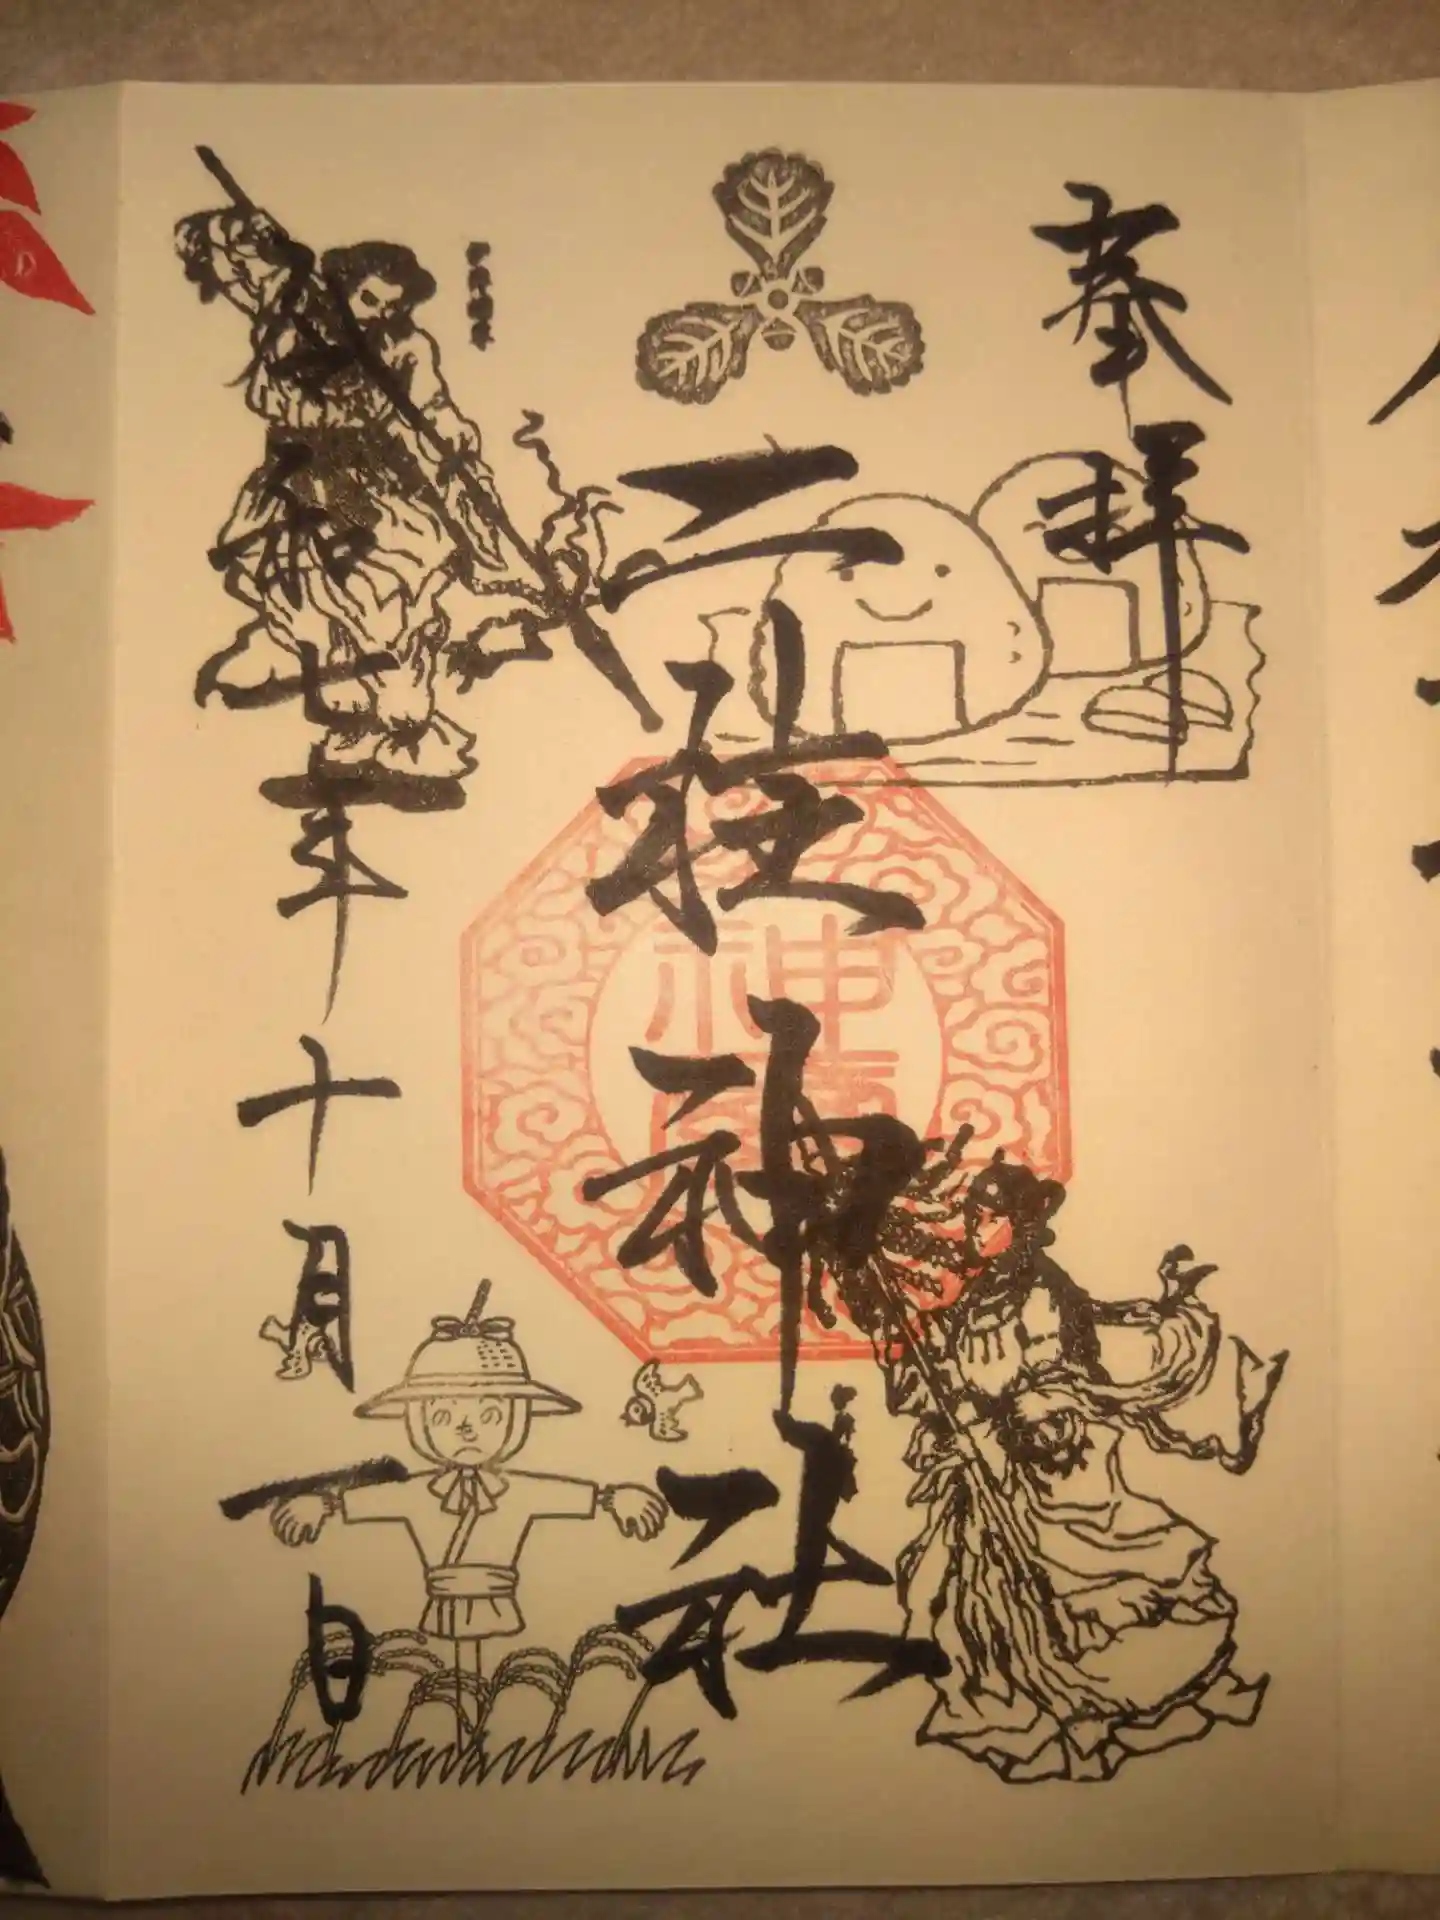 奉拝
二柱神社
令和七年十月一日
神